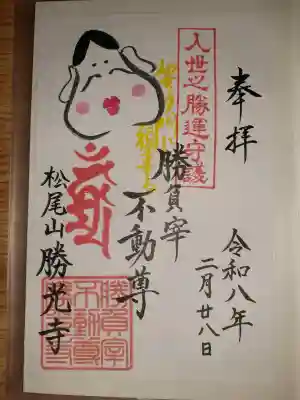 奉拝
令和八年
二月廿八日
入世之勝運守護
勝負宰
不動尊
松尾山 勝光寺
勝負宰
不動尊